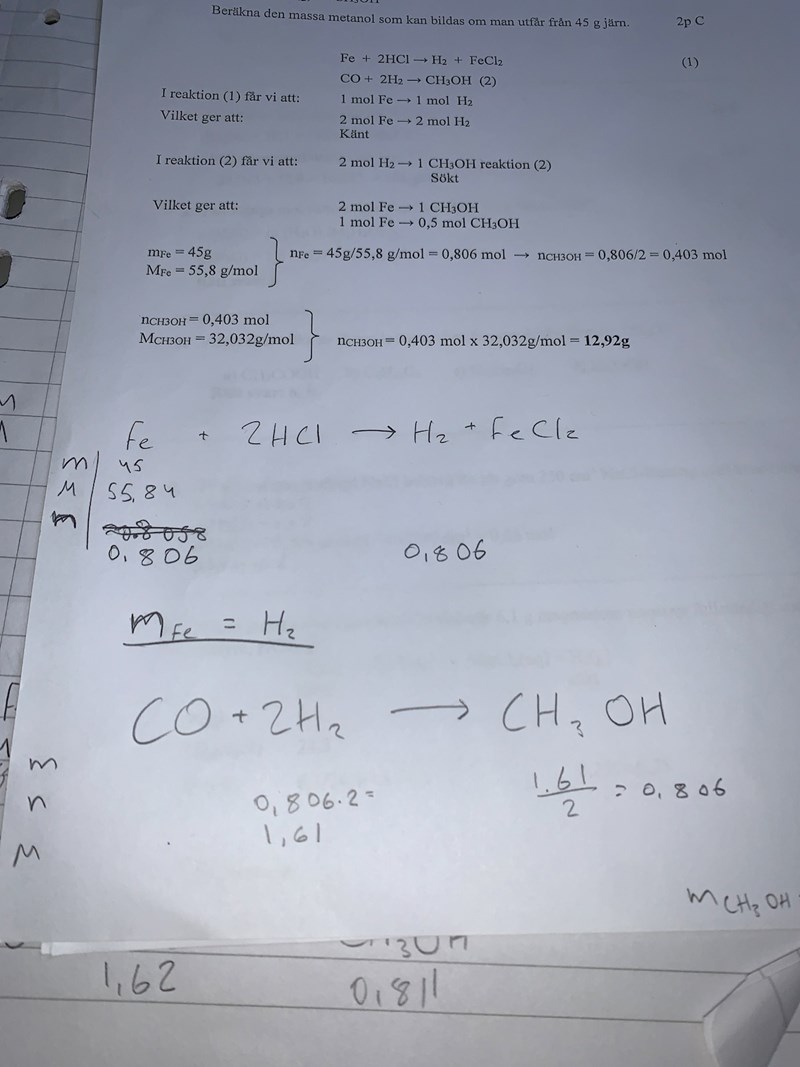 CH₃OH
Beräkna den massa metanol som kan bildas om man utfår från 45 g järn. 2p C
Fe + 2HCl → H₂ + FeCl₂ (1)
CO + 2H₂ → CH₃OH (2)
I reaktion (1) får vi att: 1 mol Fe → 1 mol H₂
Vilket ger att: 2 mol Fe → 2 mol H₂
Känt
I reaktion (2) får vi att: 2 mol H₂ → 1 CH₃OH reaktion (2)
Sökt
Vilket ger att: 2 mol Fe → 1 CH₃OH
1 mol Fe → 0,5 mol CH₃OH
mFe = 45g
MFe = 55,8 g/mol } nFe = 45g/55,8 g/mol = 0,806 mol → nCH3OH = 0,806/2 = 0,403 mol
nCH3OH = 0,403 mol
MCH3OH = 32,032g/mol } nCH3OH = 0,403 mol x 32,032g/mol = 12,92g
Fe + 2HCl → H₂ + FeCl₂
m 45
M 55,84
m
0,806 0,806
mFe = H₂
CO + 2H₂ → CH₃OH
m
n 0,806·2= 1.61/2 = 0,806
1,61
M
mCH₃OH
CH₃OH
1,62 0,811